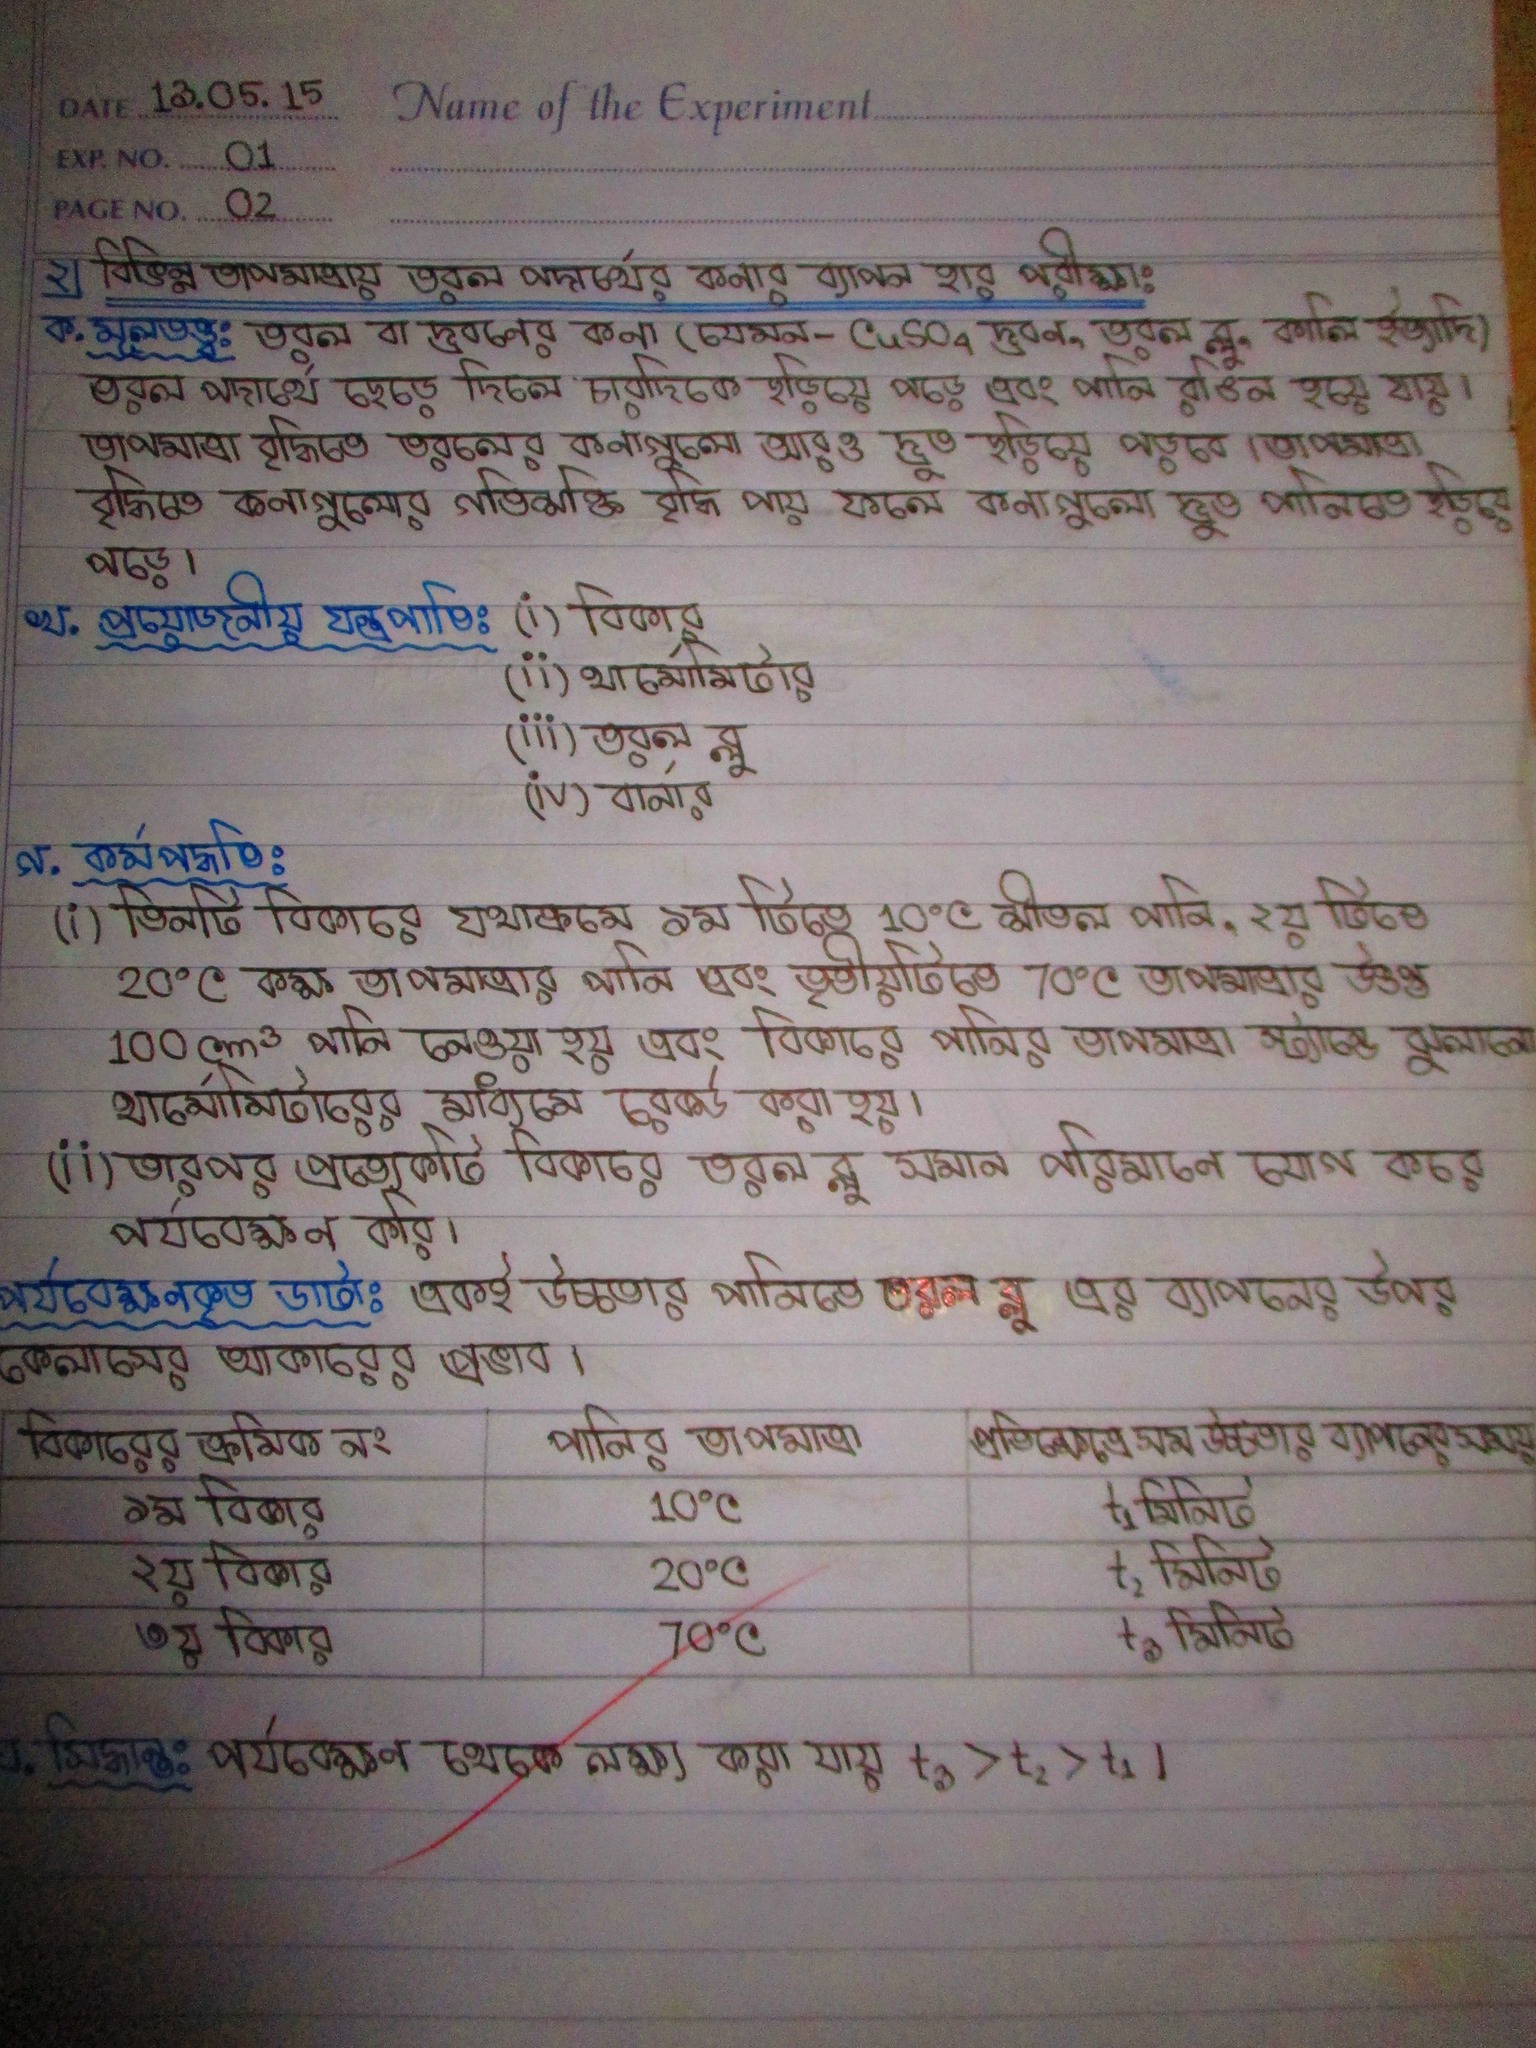 DATE 13.05.15 Name of the Experiment
EXP. NO. 01
PAGE NO. 02
২) বিভিন্ন তাপমাত্রায় তরল পদার্থের কনার ব্যাপন হার পরীক্ষাঃ
ক. মূলতত্ত্বঃ তরল বা দ্রবনের কনা (যেমন- CuSO4 দ্রবন, তরল ব্লু, কালি ইত্যাদি)
তরল পদার্থে ছেড়ে দিলে চারদিকে ছড়িয়ে পড়ে এবং পানি রঙিন হয়ে যায়।
তাপমাত্রা বৃদ্ধিতে তরলের কনাগুলো আরও দ্রুত ছড়িয়ে পড়বে। তাপমাত্রা
বৃদ্ধিতে কনাগুলোর গতিশক্তি বৃদ্ধি পায় ফলে কনাগুলো দ্রুত পানিতে ছড়িয়ে
পড়ে।
খ. প্রয়োজনীয় যন্ত্রপাতিঃ (i) বিকার
(ii) থার্মোমিটার
(iii) তরল ব্লু
(iv) বার্নার
গ. কর্মপদ্ধতিঃ
(i) তিনটি বিকারে যথাক্রমে ১ম টিতে 10°C শীতল পানি, ২য় টিতে
20°C কক্ষ তাপমাত্রার পানি এবং তৃতীয়টিতে 70°C তাপমাত্রার উত্তপ্ত
100 cm³ পানি নেওয়া হয় এবং বিকারে পানির তাপমাত্রা স্ট্যান্ডে ঝুলানো
থার্মোমিটারের মাধ্যমে রেকর্ড করা হয়।
(ii) তারপর প্রত্যেকটি বিকারে তরল ব্লু সমান পরিমানে যোগ করে
পর্যবেক্ষন করি।
পর্যবেক্ষনকৃত ডাটাঃ একই উচ্চতার পানিতে তরল ব্লু এর ব্যাপনের উপর
কেলাসের আকারের প্রভাব।
বিকারের ক্রমিক নং পানির তাপমাত্রা প্রতিক্ষেত্রে সম উচ্চতার ব্যাপনের সময়
১ম বিকার 10°C t₁ মিনিট
২য় বিকার 20°C t₂ মিনিট
৩য় বিকার 70°C t₃ মিনিট
সিদ্ধান্তঃ পর্যবেক্ষন থেকে লক্ষ্য করা যায় t₃ > t₂ > t₁।